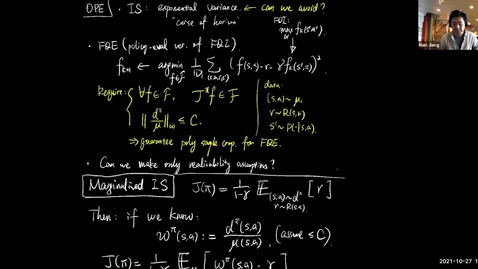 OPE • IS: exponential variance. ← can we avoid?
"curse of horizon"
FQI:
max f_k(s',a')
a'
• FQE (policy-eval ver. of FQI)
f_{k+1} ← argmin_{f∈F} 1/|D| Σ_{(s,a,r,s')} (f(s,a) - r - γ f_k(s',π))²
Require: { ∀f∈F, J^π f ∈ F
‖ d^π / μ ‖_∞ ≤ C.
data:
(s,a) ~ μ,
r ~ R(s,a)
s' ~ P(·|s,a)
⇒ guarantee poly sample comp. for FQE.
• Can we make only realizability assumptions?
Marginalized IS J(π) = 1/(1-γ) E_{(s,a)~d^π, r~R(s,a)} [r]
Then: if we know:
w^π(s,a) := d^π(s,a) / μ(s,a). (assume ≤ C)
J(π) = 1/(1-γ) E_μ [w^π(s,a) · r]
Nan Jiang
2021-10-27 1